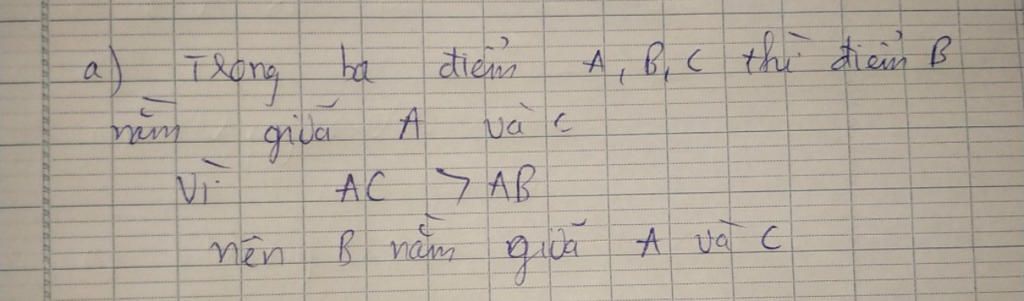 a) Trong ba điểm A, B, C thì điểm B
nằm giữa A và C
Vì AC > AB
nên B nằm giữa A và C